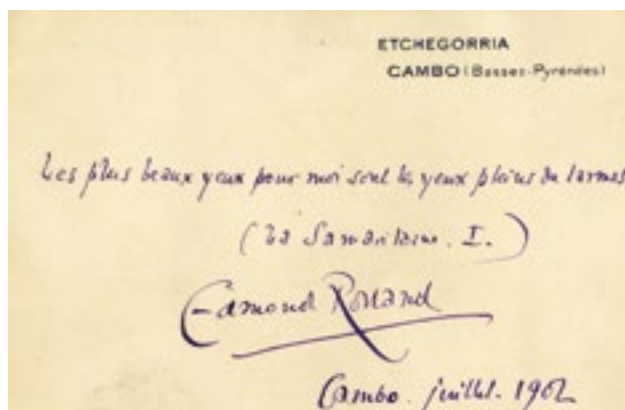 ETCHEGORRIA
CAMBO (Basses-Pyrénées)
Les plus beaux yeux pour moi sont les yeux pleins de larmes
(La Samaritaine. I.)
Edmond Rostand
Cambo. juillet. 1902